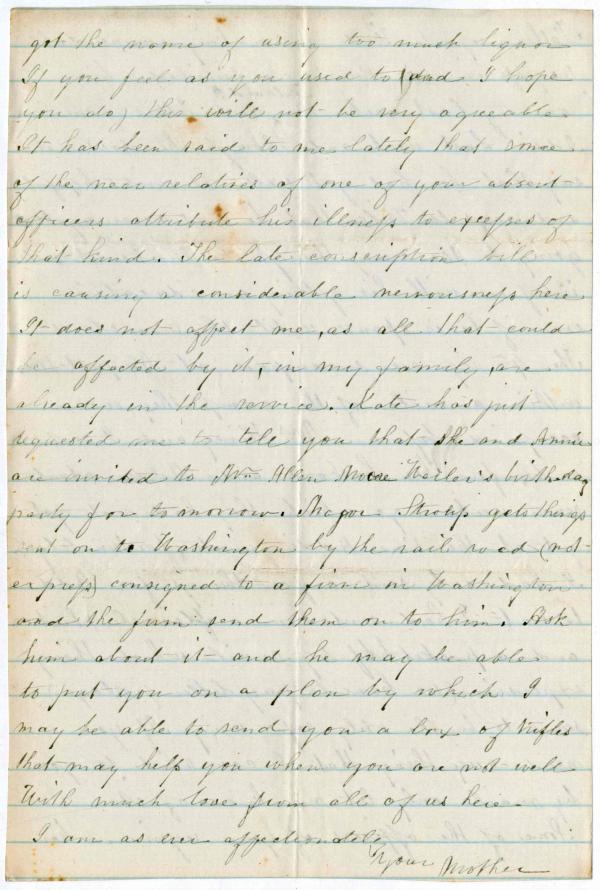 got the name of using too much liquor
If you feel as you used to (and I hope
you do) this will not be very agreeable.
It has been said to me lately that some
of the near relatives of one of your absent
officers attribute his illness to excesses of
that kind. The late conscription bill
is causing a considerable nervousness here
It does not affect me, as all that could
be affected by it, in my family, are
already in the service. Kate has just
requested me to tell you that she and Annie
are invited to Wm Allen Moore Weiler's birth-day
party for to morrow. Major Stroup gets things
sent on to Washington by the rail road (not
express) consigned to a firm in Washington
and the firm send them on to him. Ask
him about it and he may be able
to put you on a plan by which I
may be able to send you a box of trifles
that may help you when you are not well
With much love from all of us here.
I am as ever affectionately
Your Mother